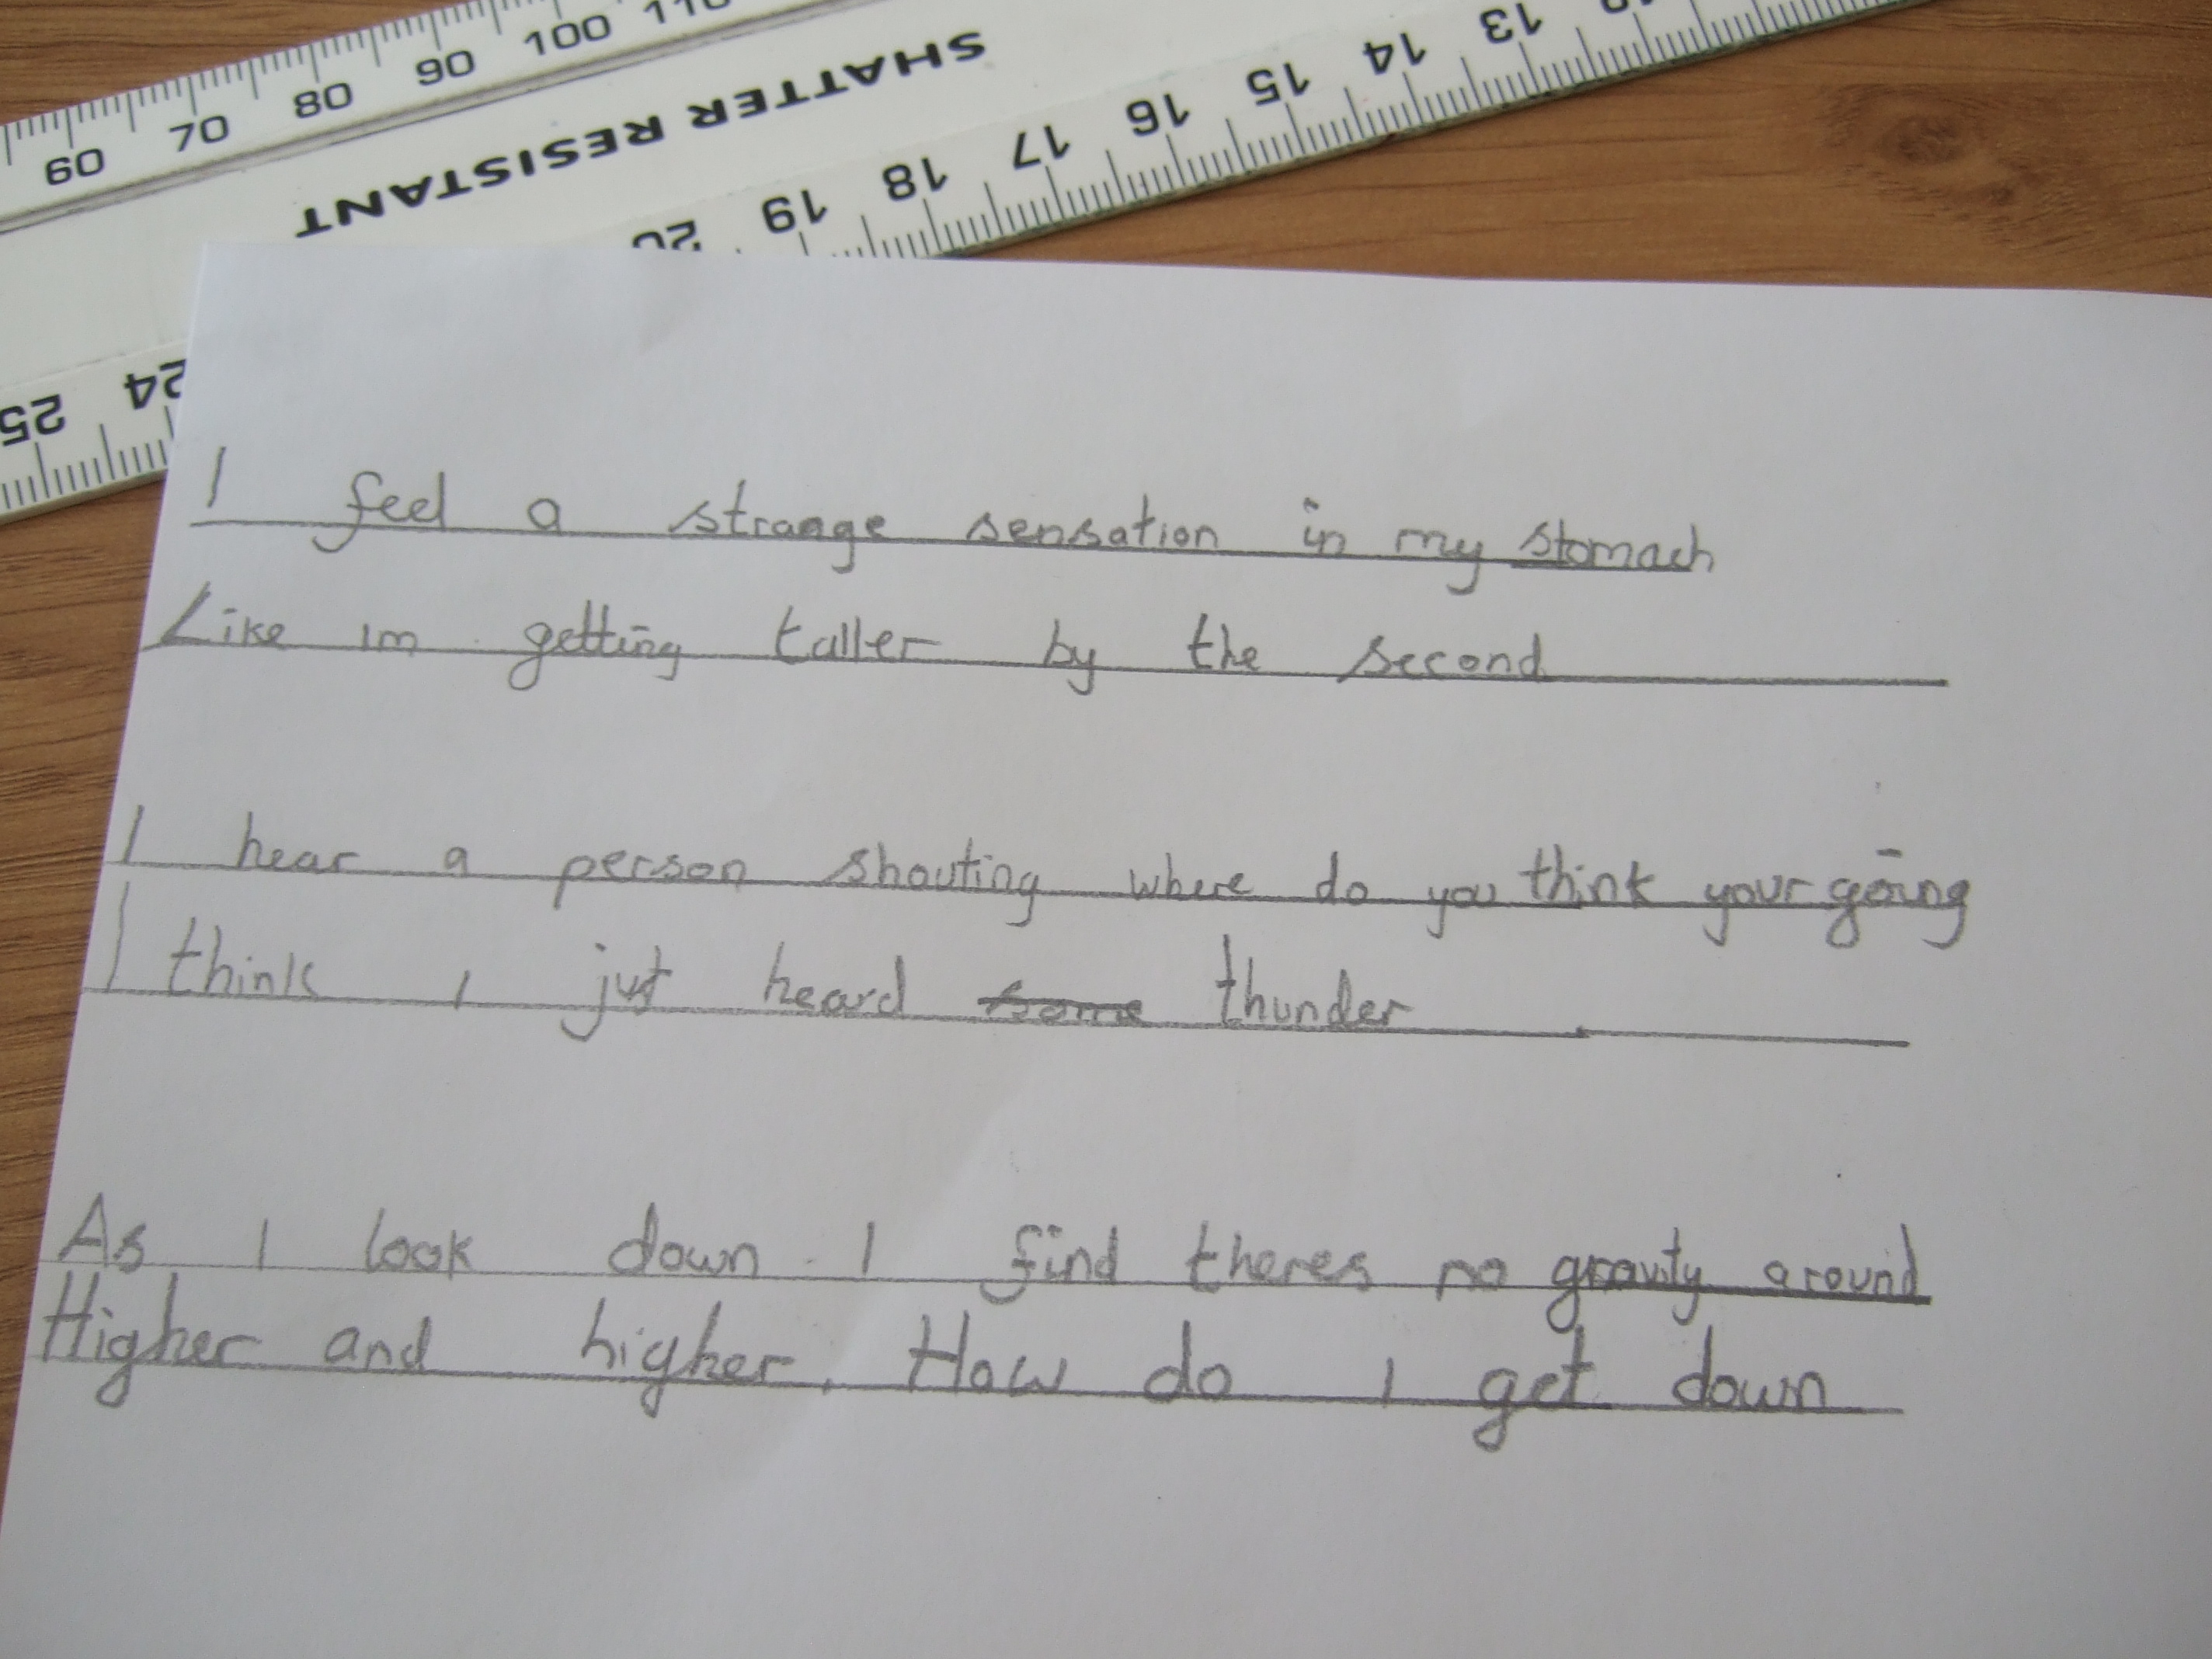 60 70 80 90 100 110
SHATTER RESISTANT
25 24 20 19 18 17 16 15 14 13
I feel a strange sensation in my stomach
Like im getting taller by the second
I hear a person shouting where do you think your going
I think I just heard some thunder
As I look down I find theres no gravity around
Higher and higher. How do I get down